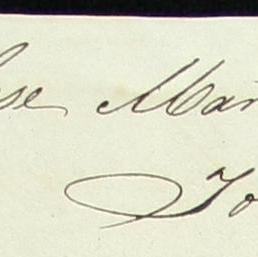 se Mar
To